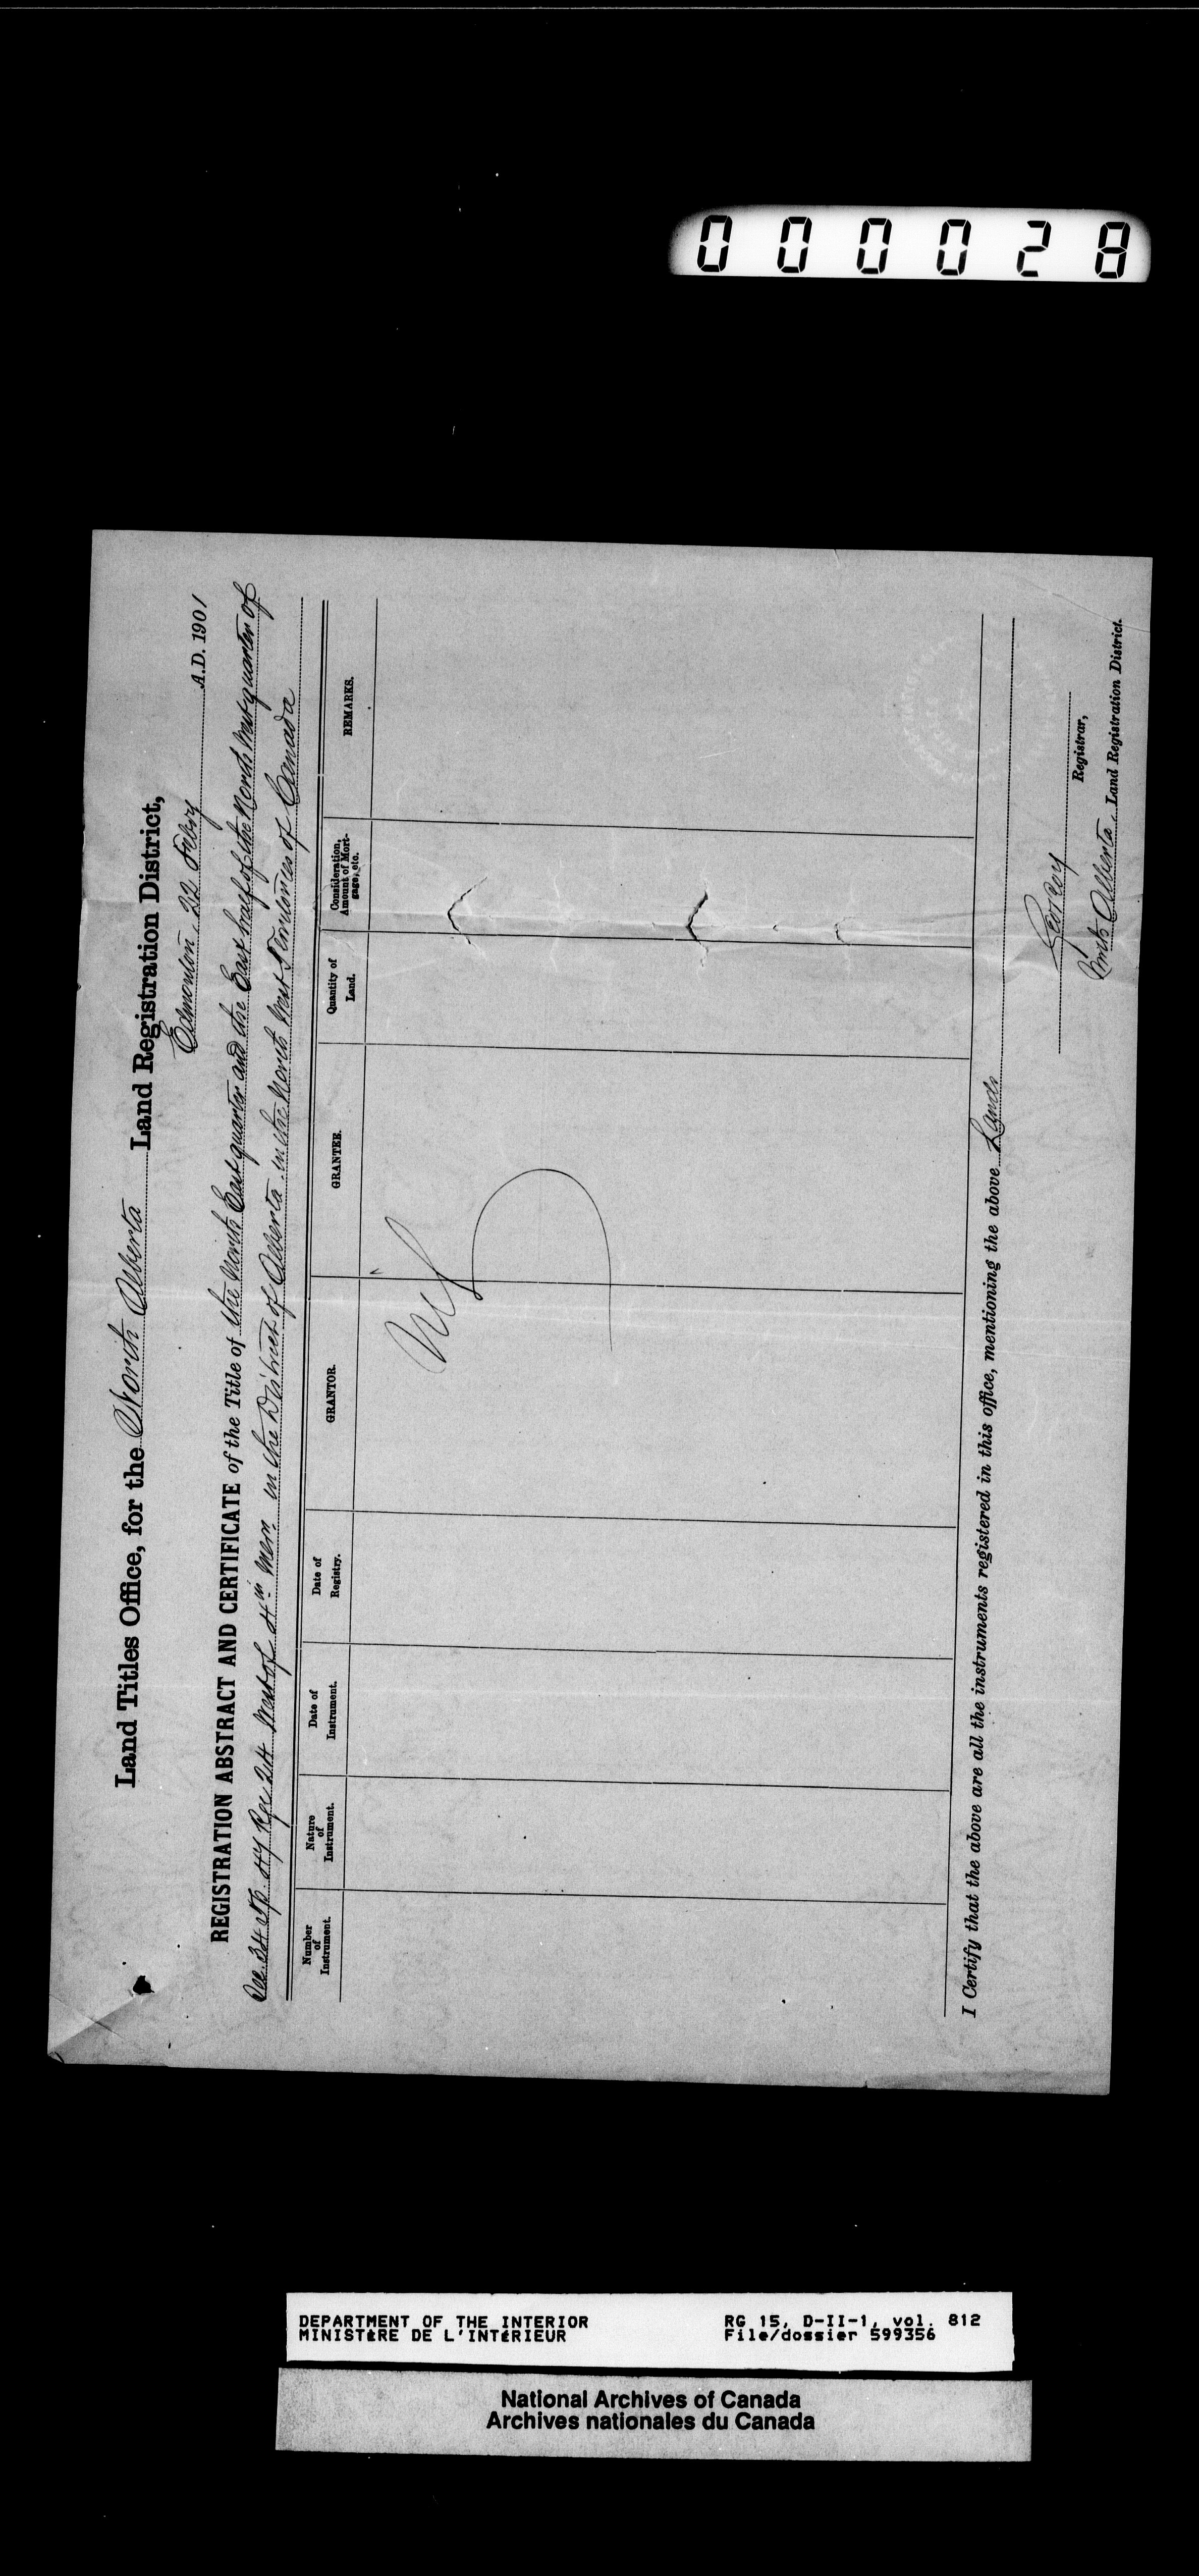 000028
Land Titles Office, for the North Alberta Land Registration District,
Edmonton, 22 Febry A.D. 1901
REGISTRATION ABSTRACT AND CERTIFICATE of the Title of the North East quarter and the East half of the North West quarter of
Sec. 34 Tp. 47 Rge 24 West of 4th Mer. in the District of Alberta in the North West Territories of Canada
Number of Instrument.
Nature of Instrument.
Date of Instrument.
Date of Registry.
GRANTOR.
GRANTEE.
Quantity of Land.
Consideration, Amount of Mortgage, etc.
REMARKS.
Nil
I Certify that the above are all the instruments registered in this office, mentioning the above Lands
Geo Roy
Registrar,
North Alberta, Land Registration District.
DEPARTMENT OF THE INTERIOR RG 15, D-II-1, vol. 812
MINISTÈRE DE L'INTÉRIEUR File/dossier 599356
National Archives of Canada
Archives nationales du Canada